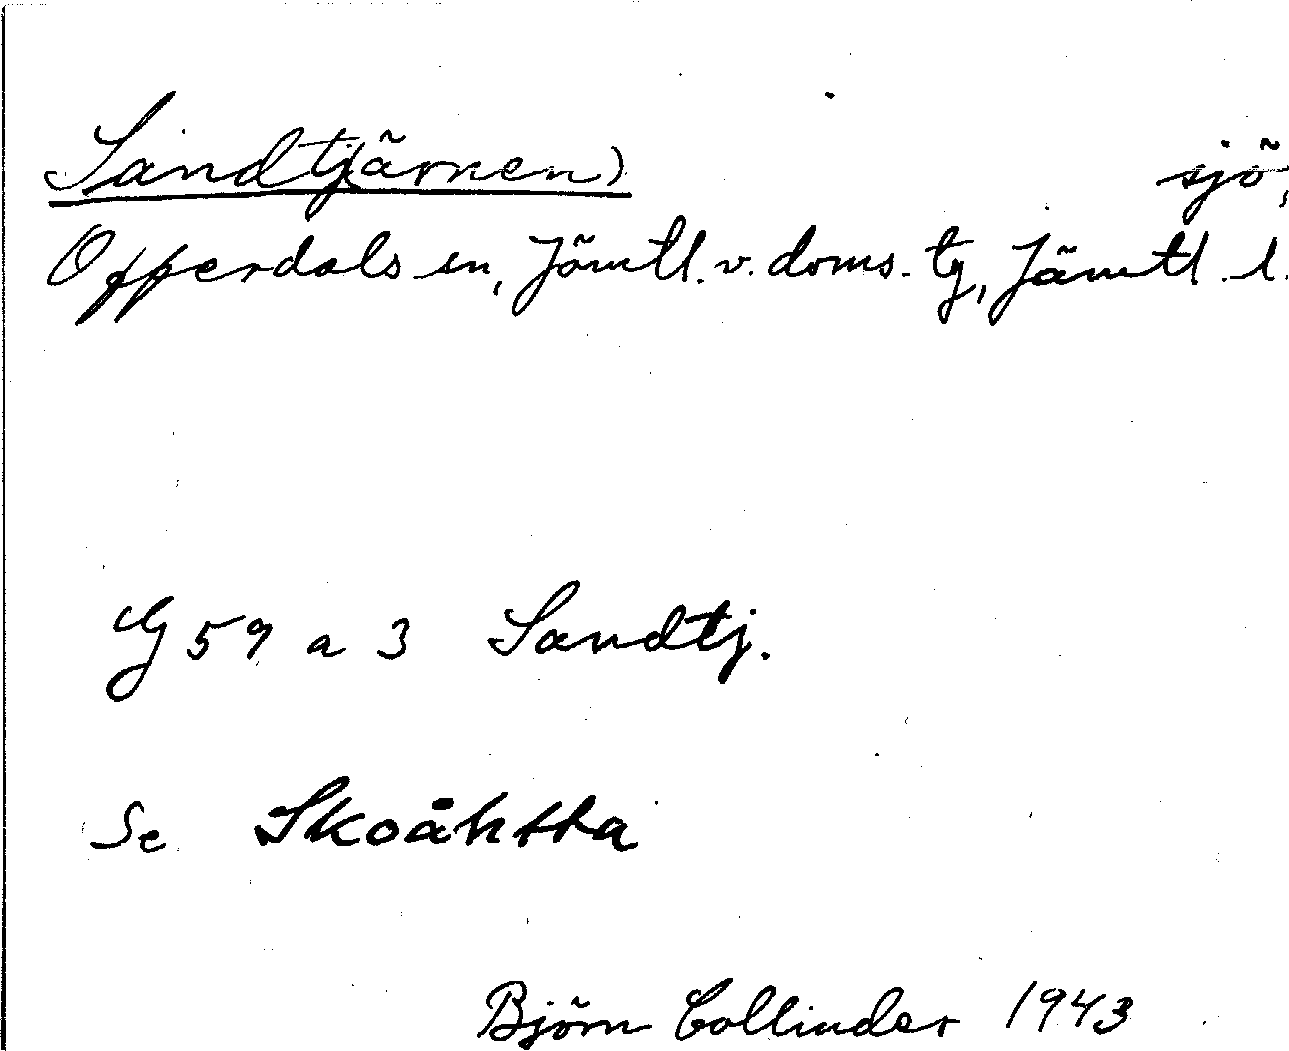 Sandtjärnen) sjö,
Offerdals sn, Jämtl. v. doms. tg, Jämtl. l.
G 59 a 3 Sandtj.
Se Skoåhtta
Björn Collinder 1943